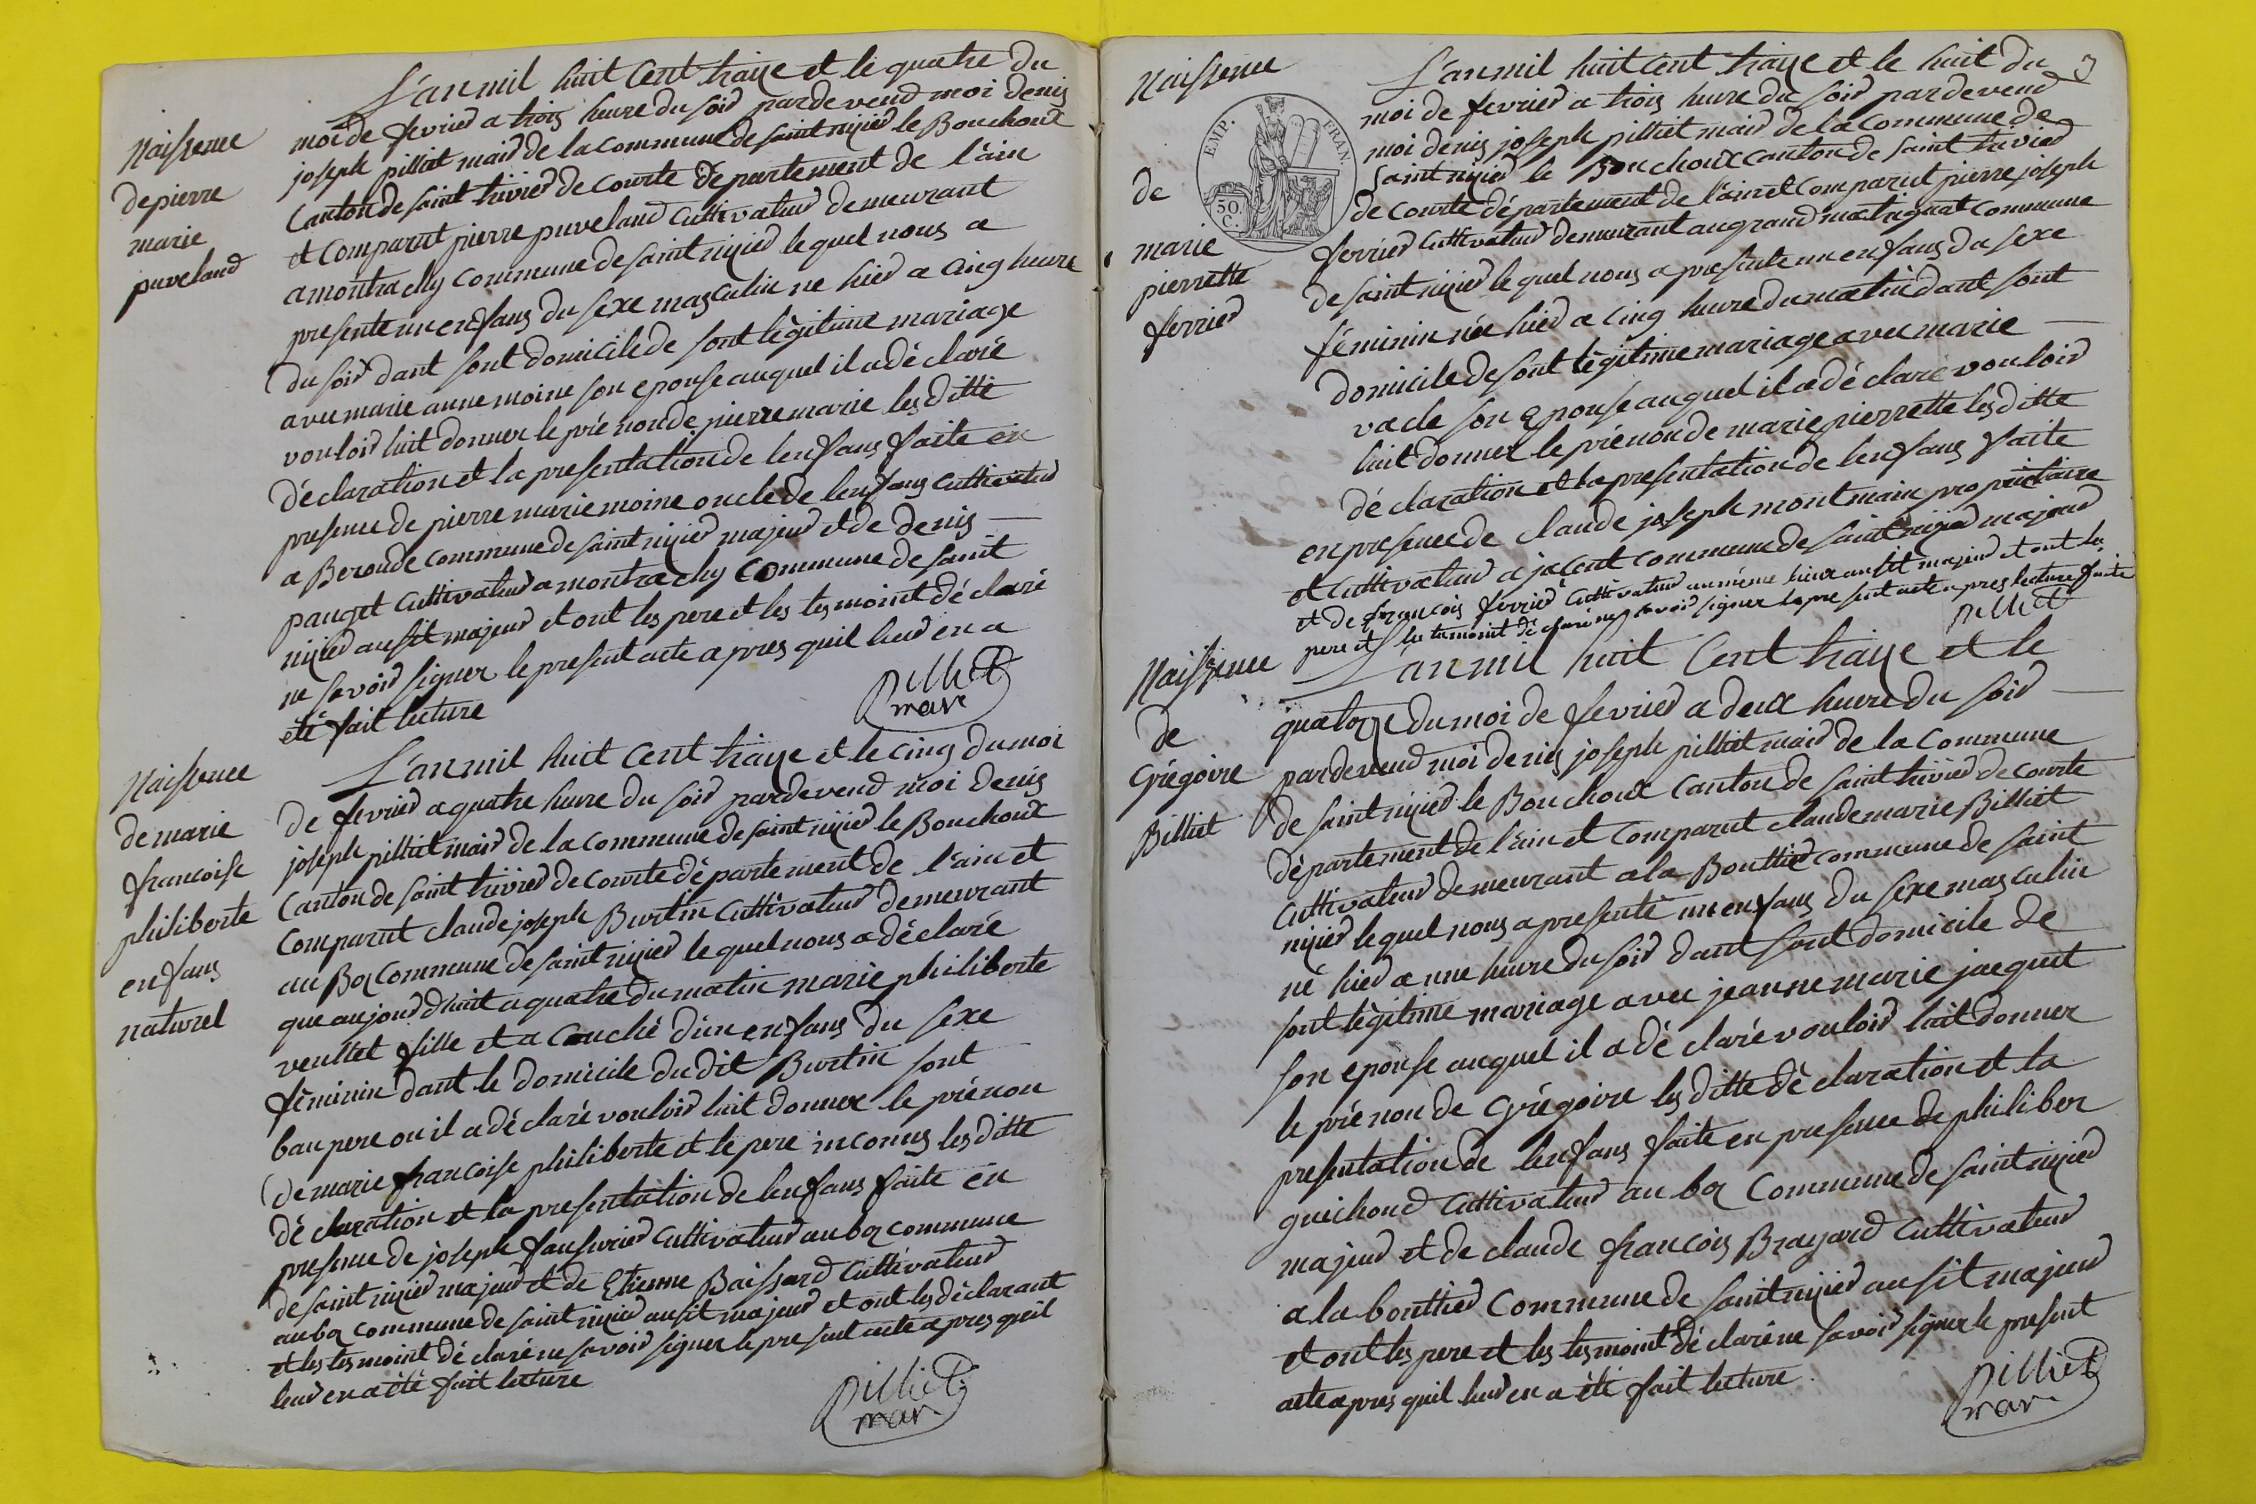 Naissence
de pierre
marie
puveland
L'an mil huit Cent traize et le quatre du
moi de fevrier a trois heure du soir pardevend moi denis
joseph pilliet mair de la commune de saint nizier le Bouchoux
Canton de saint trivier de Courte département de l'ain
et Comparut pierre puveland Cultivateur demeurant
a montrachy commune de saint nizier le quel nous a
presente un enfans du sexe masculin ne hier a cinq heure
du soir dant sont domicile de sont légitime mariage
avec marie anne moine son epouse auquel il a déclaré
vouloir luit donner le prénon de pierre marie les ditte
déclaration et la presentation de lenfans faite en
presence de pierre marie moine oncle de lenfans cultivateur
a Beroude commune de saint nizier majeur et de denis
pauget cultivateur a montrachy commune de saint
nizier ausit majeur et ont les pere et les tesmoint déclaré
ne savoir signer le present acte apres quil leur en a
été fait lecture
Pilliet
mair
Naissence
de marie
francoise
philiberte
enfans
naturel
L'an mil huit Cent traize et le cinq du moi
de fevrier a quatre heure du soir pardevend moi denis
joseph pilliet mair de la commune de saint nizier le Bouchoux
Canton de saint trivier de Courte département de l'ain et
Comparut claude joseph Burtin Cultivateur demeurant
au Boz Commune de saint nizier le quel nous a déclaré
que aujourd'huit a quatre du matin marie philiberte
veullet fille et a Couché d'un enfans du sexe
féminin dant le domicile du dit Burtin sont
bau pere ou il a déclaré vouloir luit donner le prénon
de marie francoise philiberte et le pere inconus les ditte
déclaration et la presentation de lenfans faite en
presence de joseph fausurier Cultivateur au boz commune
de saint nizier majeur et de Etienne Baissard Cultivateur
au boz commune de saint nizier ausit majeur et ont les déclarant
et les tesmoint déclaré ne savoir signer le present acte apres quil
leur en a été fait lecture
Pilliet
mair
3
Naissence
de
marie
pierrette
ferrier
EMP. FRAN.
50
C.
L'an mil huit cent traize et le huit du
moi de fevrier a trois heure du soir pardevend
moi denis joseph pilliet mair de la commune de
saint nizier le Bouchoux canton de saint trivier
de Courte département de l'ain et Comparut pierre joseph
ferrier Cultivateur demeurant au grand matragnat commune
de saint nizier le quel nous a presente un enfans du sexe
féminin née hier a cinq heure du matin dant sont
domicile de sont légitime mariage avec marie
vacle son epouse auquel il a déclaré vouloir
luit donner le prénon de marie pierrette les ditte
déclaration et la presentation de lenfans faite
en presence de claude joseph montmain proprietaire
et cultivateur a jacent commune de saint nizier majeur
et de francois ferrier cultivateur au même lieux ausit majeur et ont les
pere et les temoint déclaré ne savoir signer le present acte apres lecture faite
Pilliet
Naissence
de
Grégoire
Billiet
L'an mil huit Cent traize et le
quatorze du moi de fevrier a deux heure du soir
pardevend moi denis joseph pilliet mair de la commune
de saint nizier le Bouchoux Canton de saint trivier de Courte
département de l'ain et comparut claude marie Billiet
Cultivateur demeurant a la Bouttier commune de saint
nizier le quel nous a presenté un enfans du sexe masculin
né hier a une heure du soir dant sont domicile de
sont légitime mariage avec jeanne marie jacquet
son epouse auquel il a déclaré vouloir luit donner
le prénon de Grégoire les ditte déclaration et la
presentation de lenfans faite en presence de philiber
guichond Cultivateur au boz Commune de saint nizier
majeur et de claude francois Brayard Cultivateur
a la bouttier Commune de saint nizier ausit majeur
et ont les pere et les tesmoint déclaré ne savoir signer le present
acte apres quil leur en a été fait lecture
Pilliet
mair